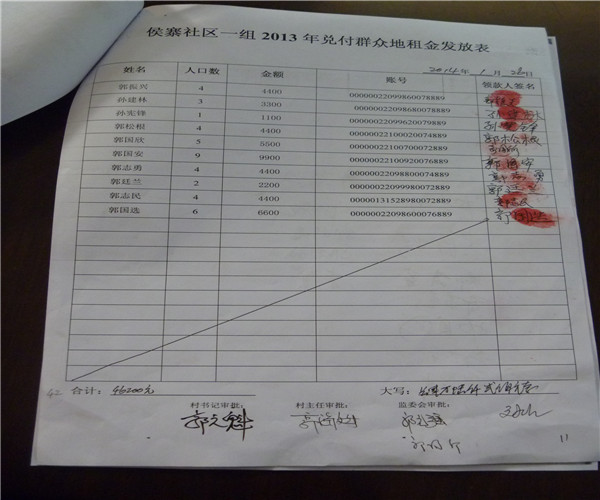 侯寨社区一组 2013 年兑付群众地租金发放表
2014年 1 月 28日
姓名 人口数 金额 账号 领款人签名
郭振兴 4 4400 00000022099860078889
孙建林 3 3300 00000022098680078889
孙宪锋 1 1100 00000022099620079889
郭松根 4 4400 00000022100020074889 郭松根
郭国欣 5 5500 00000022100700072889
郭国安 9 9900 00000022100920076889 郭国安
郭志勇 4 4400 00000022098800074889 郭志勇
郭廷兰 2 2200 00000022099980072889
郭志民 4 4400 00000131528980072889
郭国选 6 6600 00000022098600076889
合计： 46200元 大写：
村书记审批： 村主任审批： 监委会审批：
11